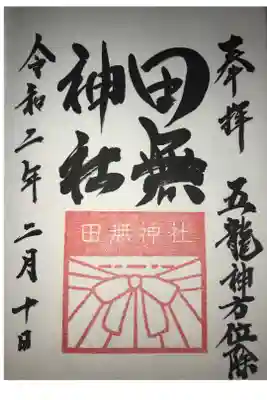 奉拝 五龍神方位除
田無
神社
田無神社
令和二年 二月十日